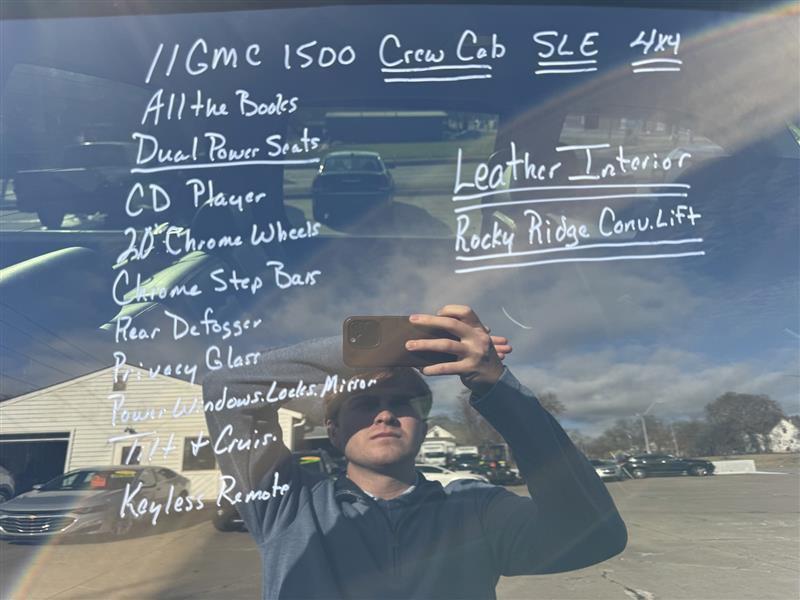 11 GMC 1500 Crew Cab SLE 4x4
All the Books
Dual Power Seats
CD Player
20" Chrome Wheels
Chrome Step Bars
Rear Defogger
Privacy Glass
Power Windows. Locks. Mirror
Tilt & Cruis.
Keyless Remote
Leather Interior
Rocky Ridge Conv. Lift